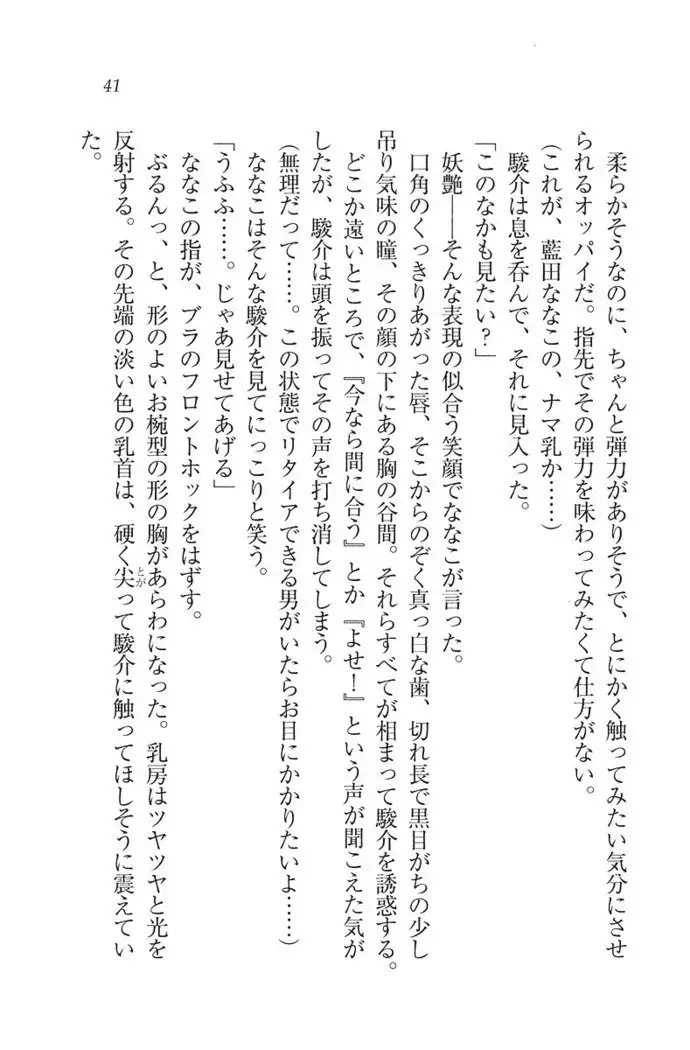 41
柔らかそうなのに、ちゃんと弾力がありそうで、とにかく触ってみたい気分にさせ
られるオッパイだ。指先でその弾力を味わってみたくて仕方がない。
（これが、藍田ななこの、ナマ乳か……）
駿介は息を呑んで、それに見入った。
「このなかも見たい？」
妖艶――そんな表現の似合う笑顔でななこが言った。
口角のくっきりあがった唇、そこからのぞく真っ白な歯、切れ長で黒目がちの少し
吊り気味の瞳、その顔の下にある胸の谷間。それらすべてが相まって駿介を誘惑する。
どこか遠いところで、『今なら間に合う』とか『よせ！』という声が聞こえた気が
したが、駿介は頭を振ってその声を打ち消してしまう。
（無理だって……。この状態でリタイアできる男がいたらお目にかかりたいよ……）
ななこはそんな駿介を見てにっこりと笑う。
「うふふ……。じゃあ見せてあげる」
ななこの指が、ブラのフロントホックをはずす。
ぶるんっ、と、形のよいお椀型の形の胸があらわになった。乳房はツヤツヤと光を
反射する。その先端の淡い色の乳首は、硬く尖って駿介に触ってほしそうに震えてい
とが
た。